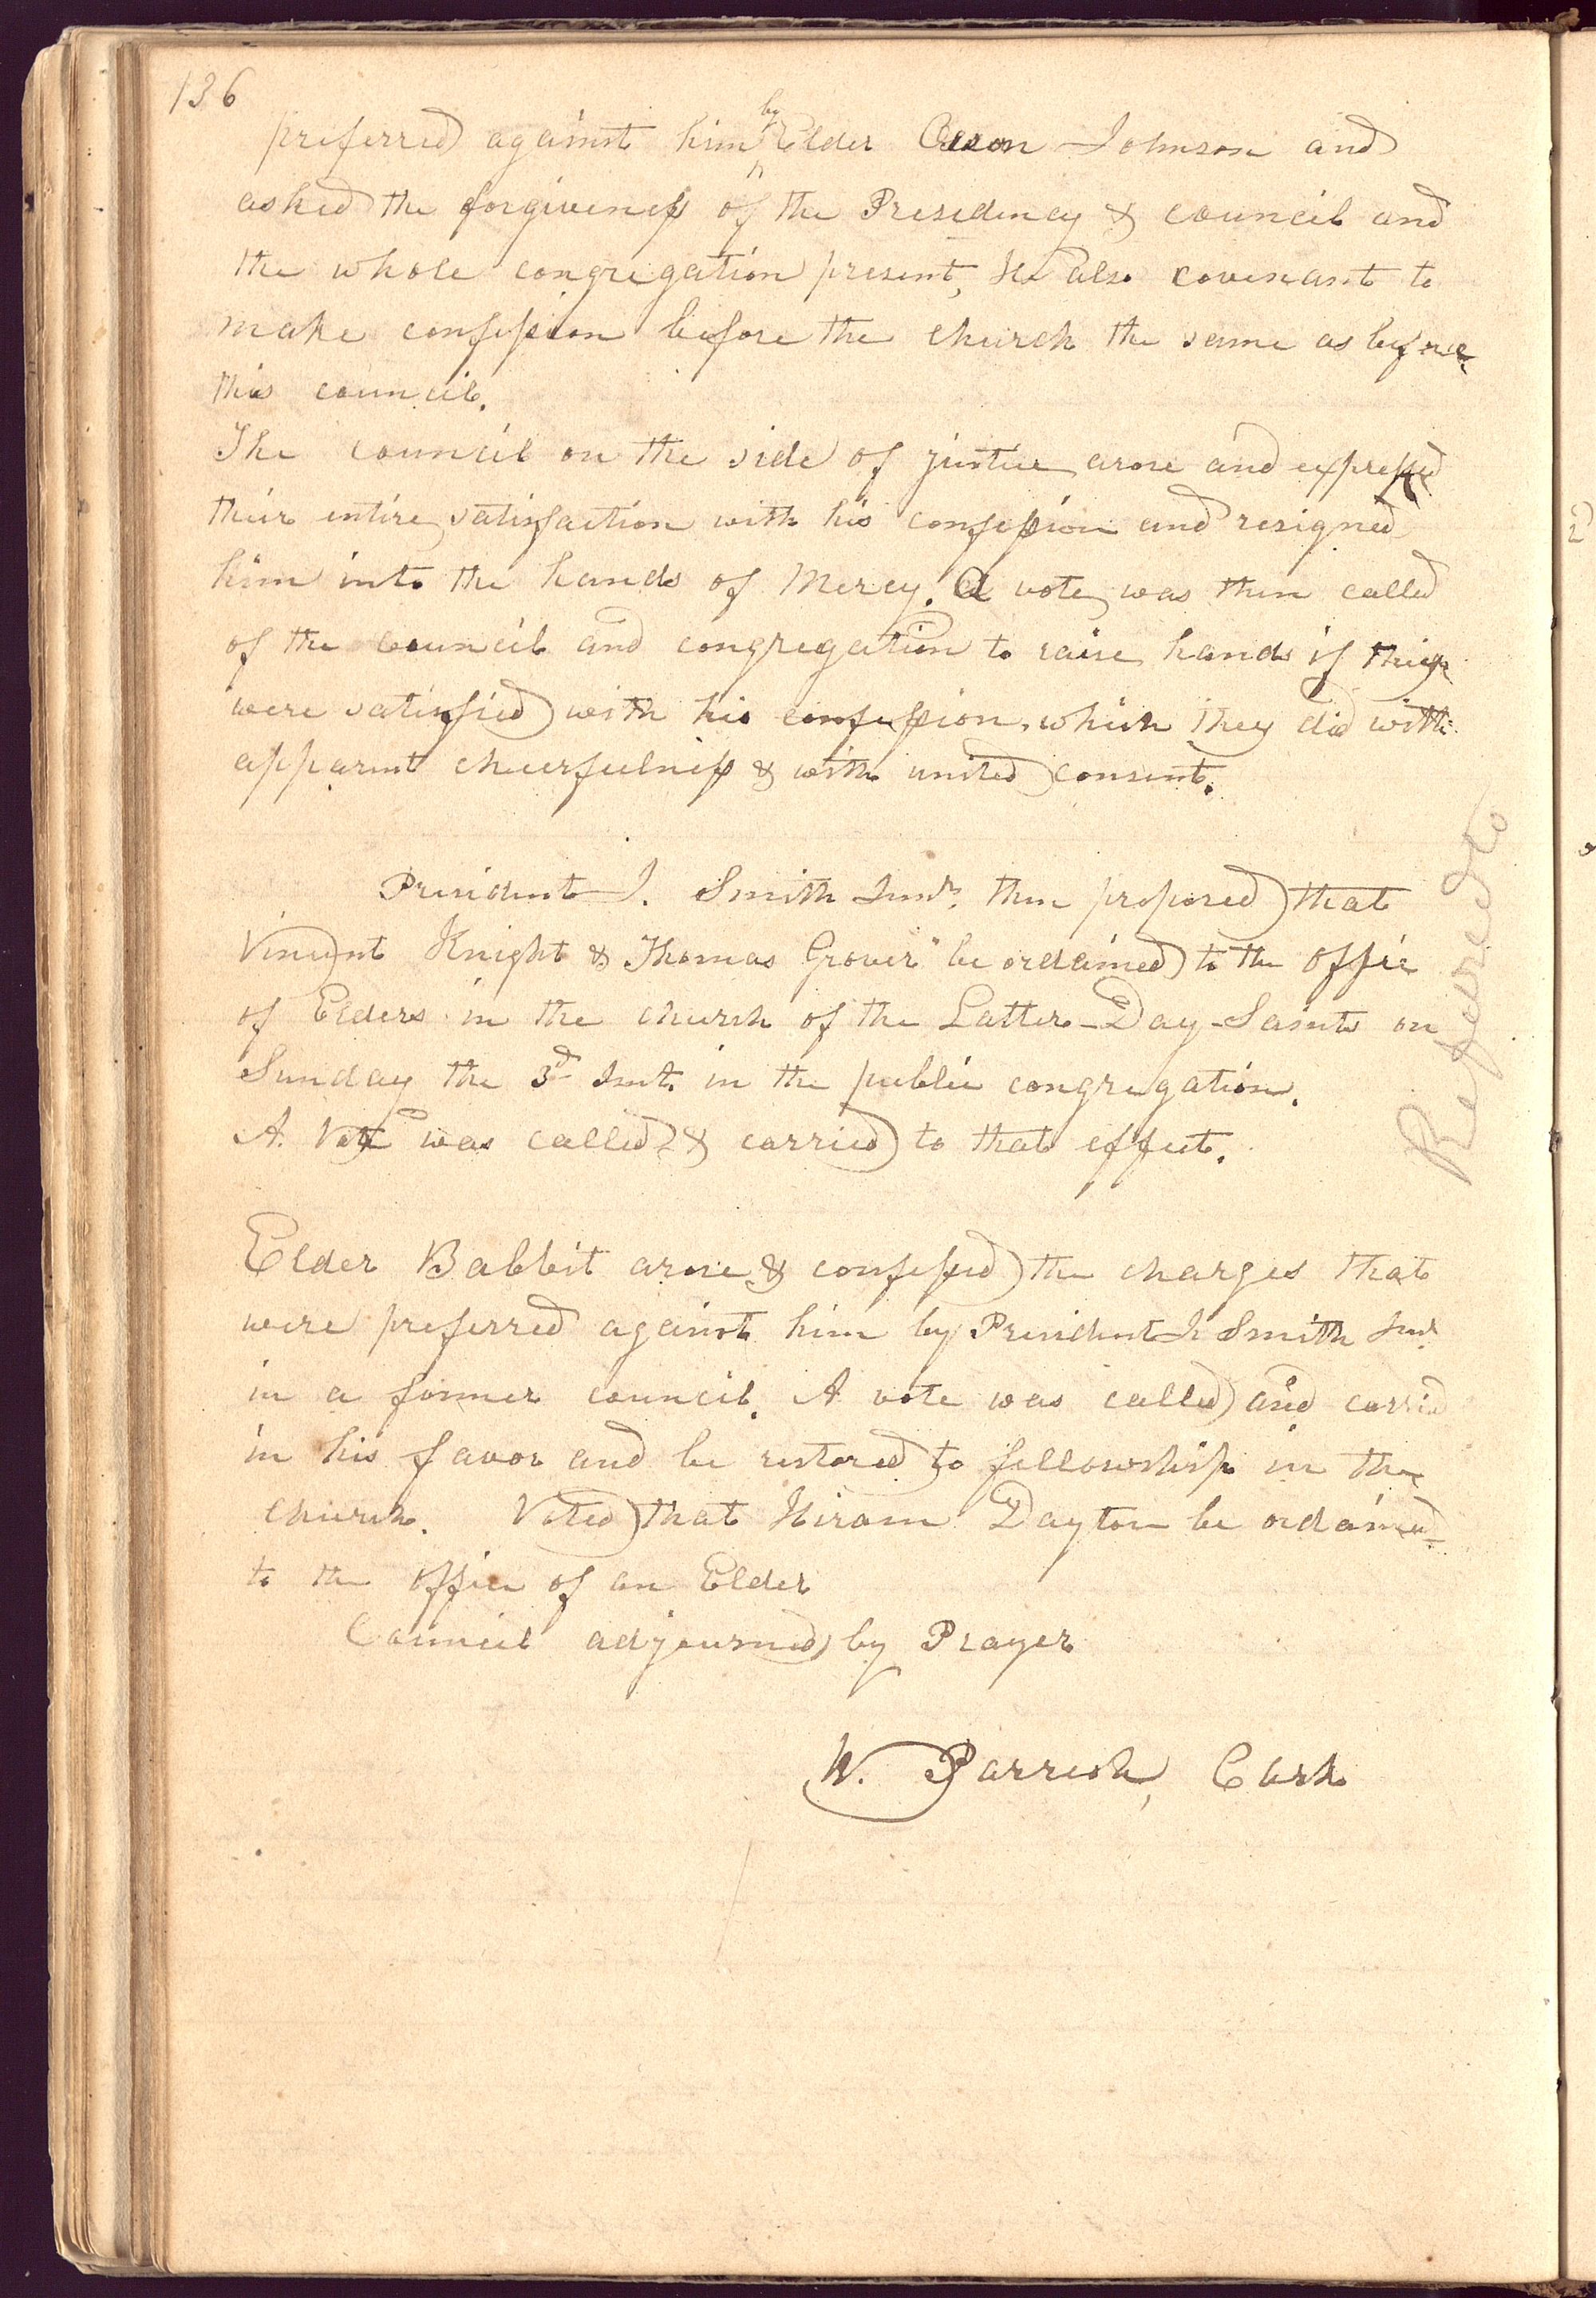 136
preferred against him by Elder Orson Johnson and
asked the forgiveness of the Presidency & council and
the whole congregation present, He also covenant to
make confession before the church the same as before
this council.
The council on the side of justice arose and expressed
their entire satisfaction with his confession and resigned
him into the hands of Mercy. A vote was then called
of the council and congregation to raise hands if they
were satisfied with his confession, which they did with
apparent cheerfulness & with united consent.
President J. Smith Junr. then proposed that
Vincent Knight & Thomas Grover be ordained to the office
of Elders in the church of the Latter-Day-Saints on
Sunday the 3d Inst. in the public congregation.
A. Vote was called & carried to that effect.
Elder Babbit arose & confessed the charges that
were preferred against him by President J. Smith Junr
in a former council. A vote was called and carried
in his favor and be restored to fellowship in the
church. Voted that Hiram Dayton be ordained
to the office of an Elder
Council adjourned by Prayer
W. Parrish, Clerk
Refered to